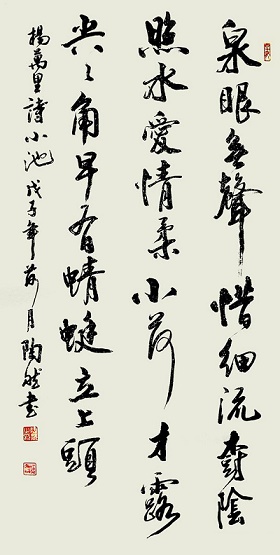 泉眼無聲惜細流樹陰
照水愛情柔小荷才露
尖々角早有蜻蜓立上頭
楊萬里詩小池戊子年荷月陶然書